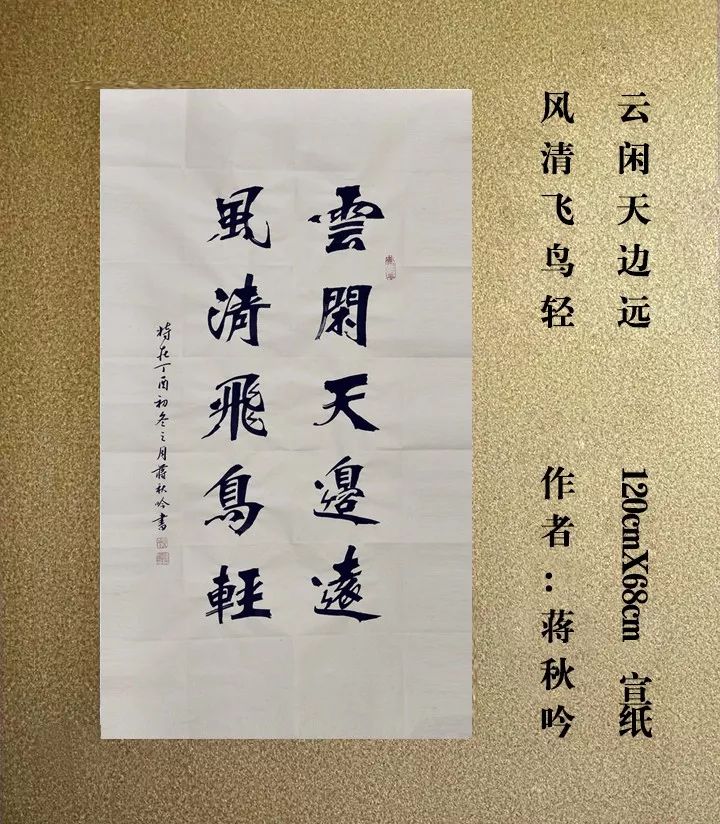 雲閑天邊遠
風清飛鳥輕
時在丁酉初冬之月蔣秋吟書
云闲天边远
风清飞鸟轻
120cmX68cm 宣纸
作者：蒋秋吟